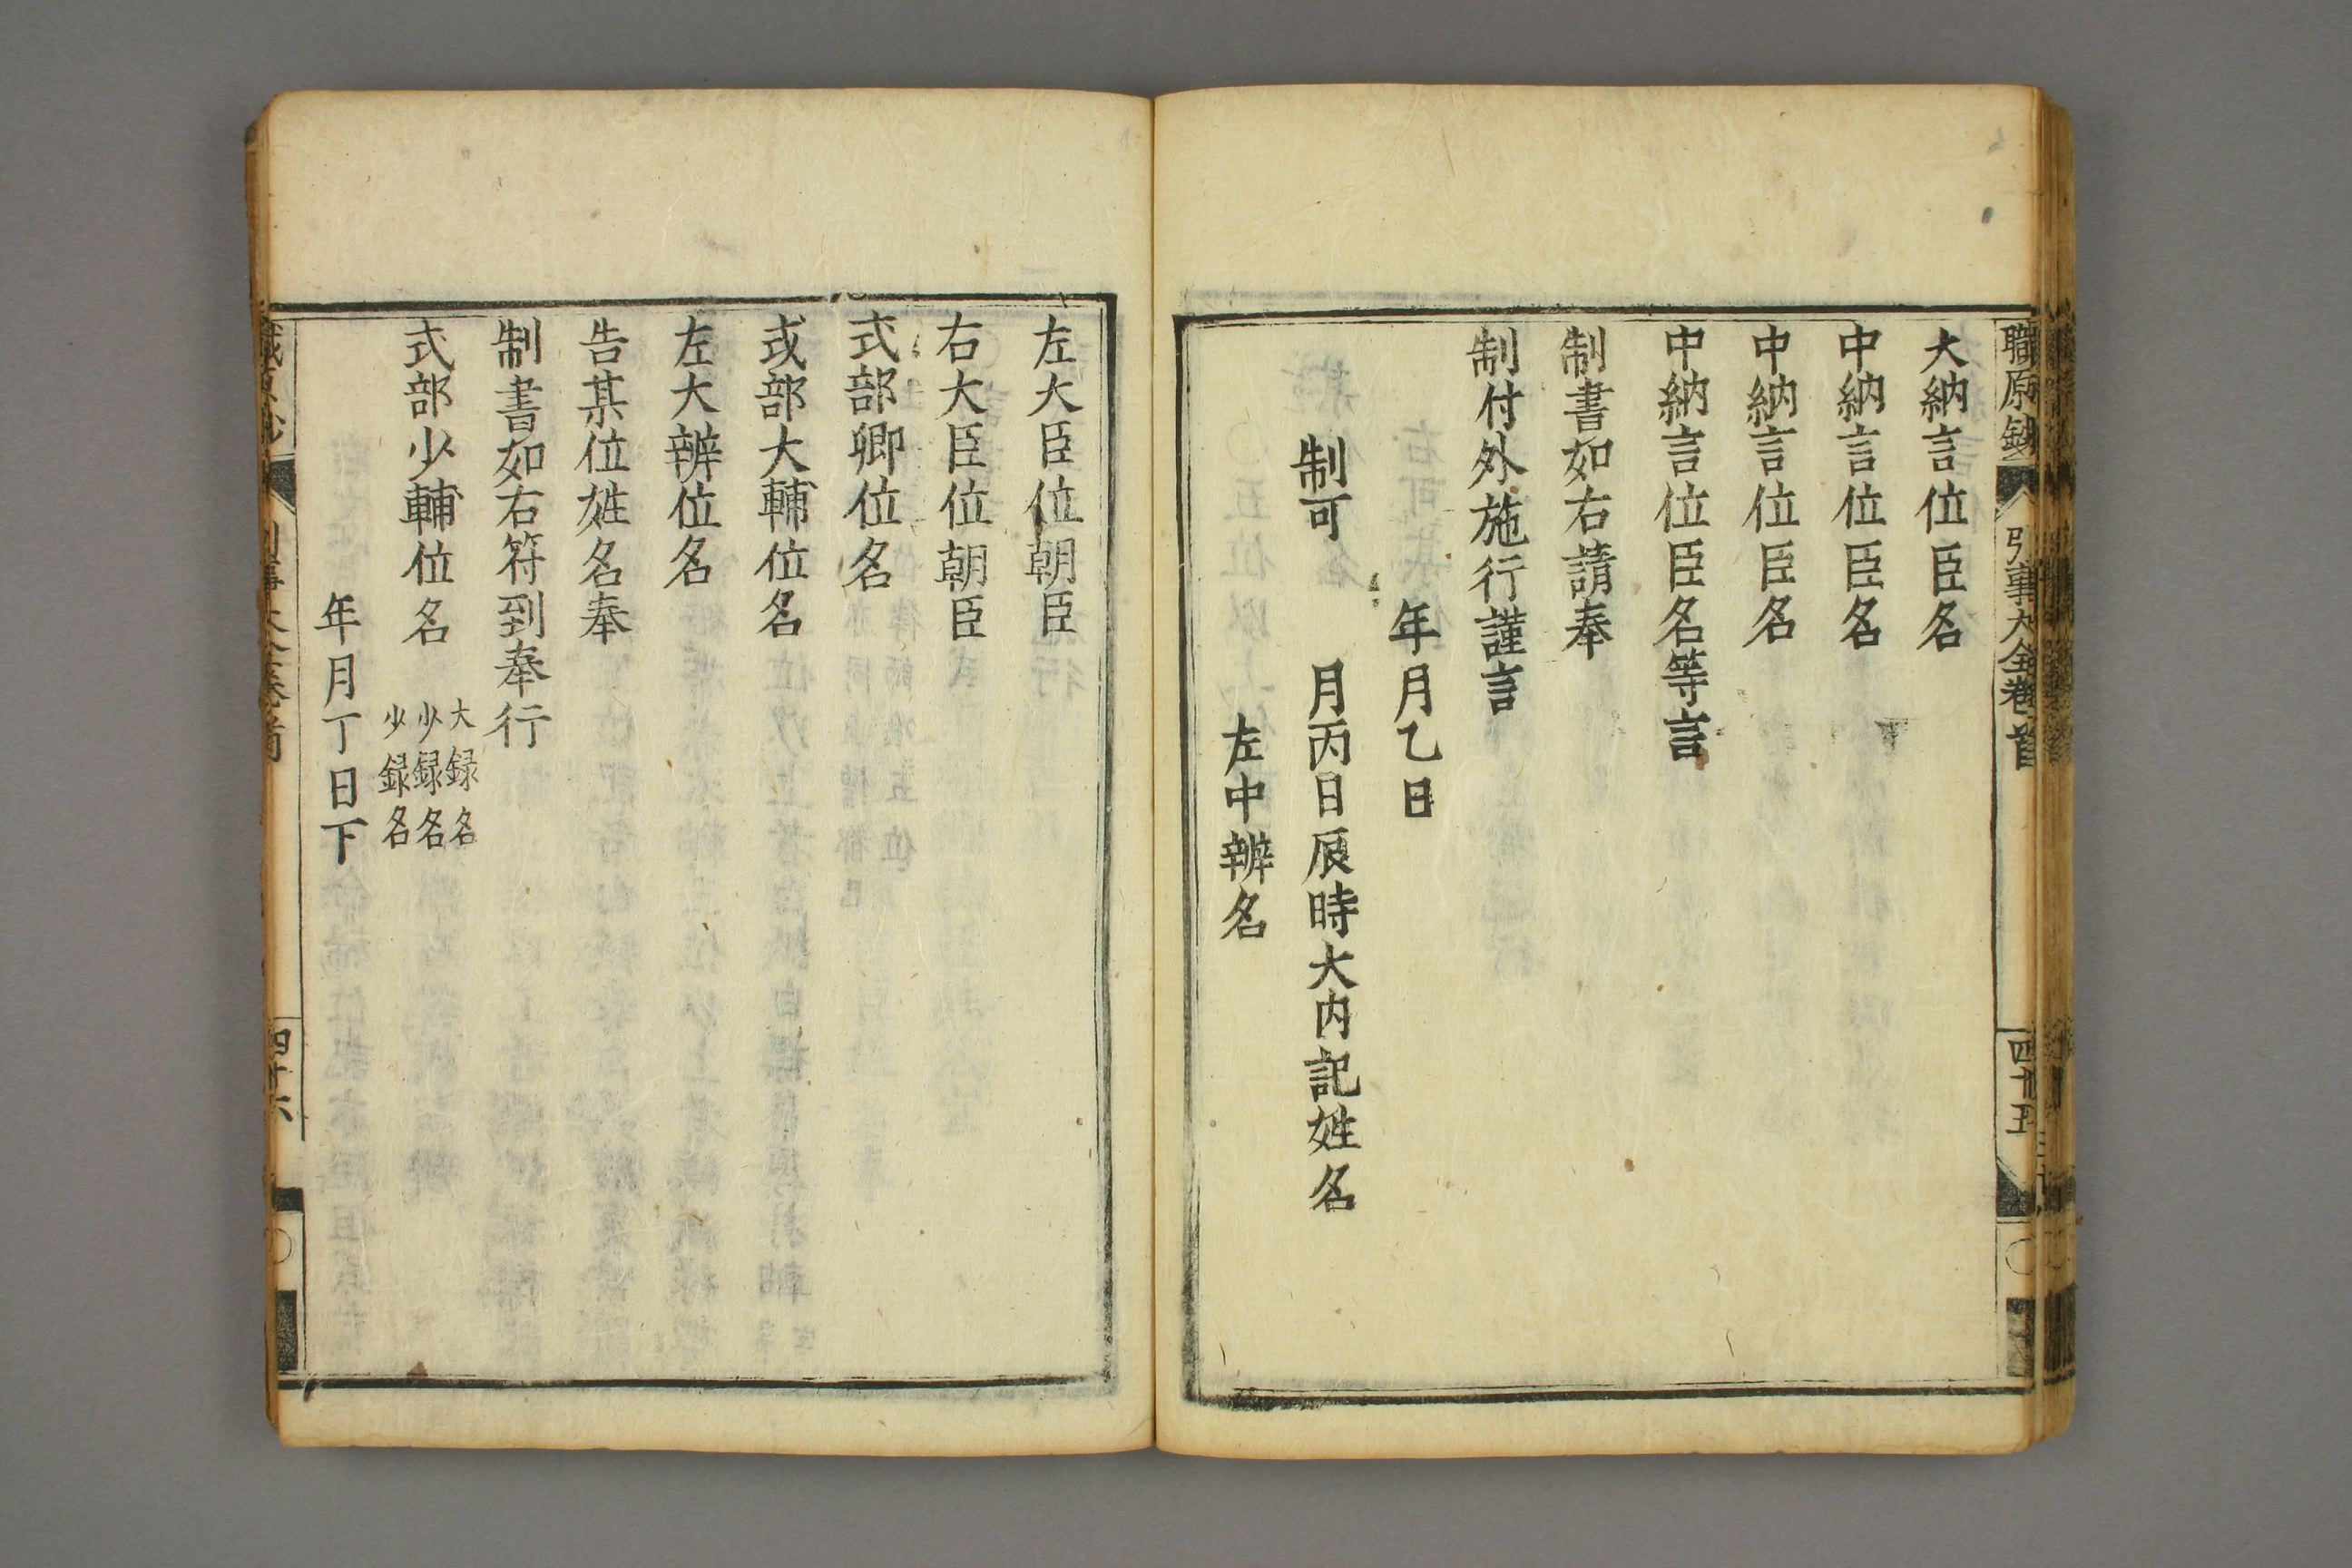 職原鈔 引事大全卷首 四十五
大納言位臣名
中納言位臣名
中納言位臣名
中納言位臣名等言
制書如右請奉
制付外施行謹言
年月乙日
制可 月丙日辰時大内記姓名
左中辨名
左大臣位朝臣
右大臣位朝臣
式部卿位名
或部大輔位名
左大辨位名
告某位姓名奉
制書如右符到奉行
式部少輔位名
大録名
少録名
少録名
年月丁日下
四十六